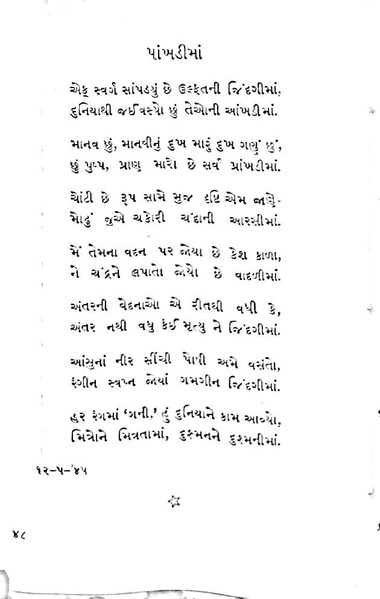 પાંખડીમાં
એક સ્વર્ગ સાંપડ્યું છે ઉલ્ફતની જિંદગીમાં,
દુનિયાથી જઈ વસ્યો છું તેઓની આંખડીમાં.
માનવ છું, માનવીનું દુખ મારું દુખ ગણું છું,
છું પુષ્પ, પ્રાણ મારો છે સર્વ પાંખડીમાં.
ચોંટી છે રૂપ સામે મુજ દૃષ્ટિ એમ જાણે-
મોઢું જુએ ચકોરી ચંદાની આરસીમાં.
મેં તેમના વદન પર જોયા છે કેશ કાળા,
ને ચંદ્રને લપાતો જોયો છે વાદળીમાં.
અંતરની વેદનાઓ એ રીતથી વધી કે,
અંતર નથી વધુ કંઈ મૃત્યુ ને જિંદગીમાં.
આંસુનાં નીર સીંચી પોષી અમે વસંતો,
રંગીન સ્વપ્ન જોયાં ગમગીન જિંદગીમાં.
હર રંગમાં ‘ગની,’ હું દુનિયાને કામ આવ્યો,
મિત્રોને મિત્રતામાં, દુશ્મનને દુશ્મનીમાં.
૧૨-૫-’૪૫
૪૮